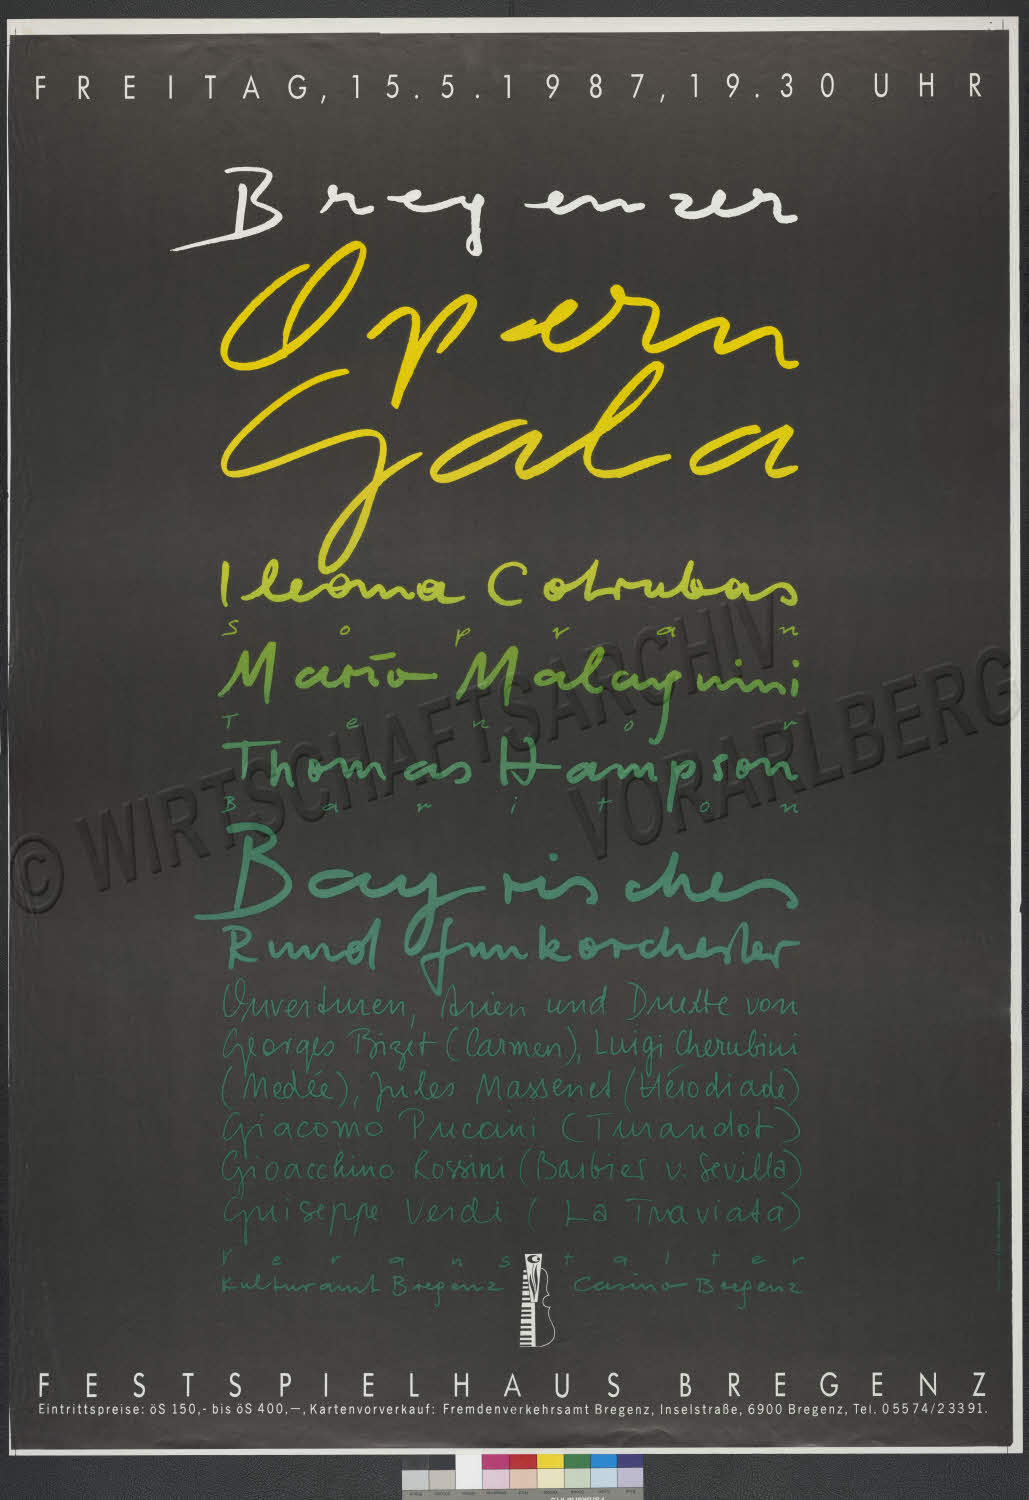 FREITAG, 15.5.1987, 19.30 UHR
Bregenzer
Opern
Gala
Ileana Cotrubas
Sopran
Mario Malagnini
Tenor
Thomas Hampson
Bariton
Bayrisches
Rundfunkorchester
Ouverturen, Arien und Duette von
Georges Bizet (Carmen), Luigi Cherubini
(Medée), Jules Massenet (Hérodiade)
Giacomo Puccini (Turandot)
Gioacchino Rossini (Barbier v. Sevilla)
Guiseppe Verdi (La Traviata)
Veranstalter
Kulturamt Bregenz Casino Bregenz
FESTSPIELHAUS BREGENZ
Eintrittspreise: öS 150,- bis öS 400,—, Kartenvorverkauf: Fremdenverkehrsamt Bregenz, Inselstraße, 6900 Bregenz, Tel. 05574/23391.
© WIRTSCHAFTSARCHIV
VORARLBERG